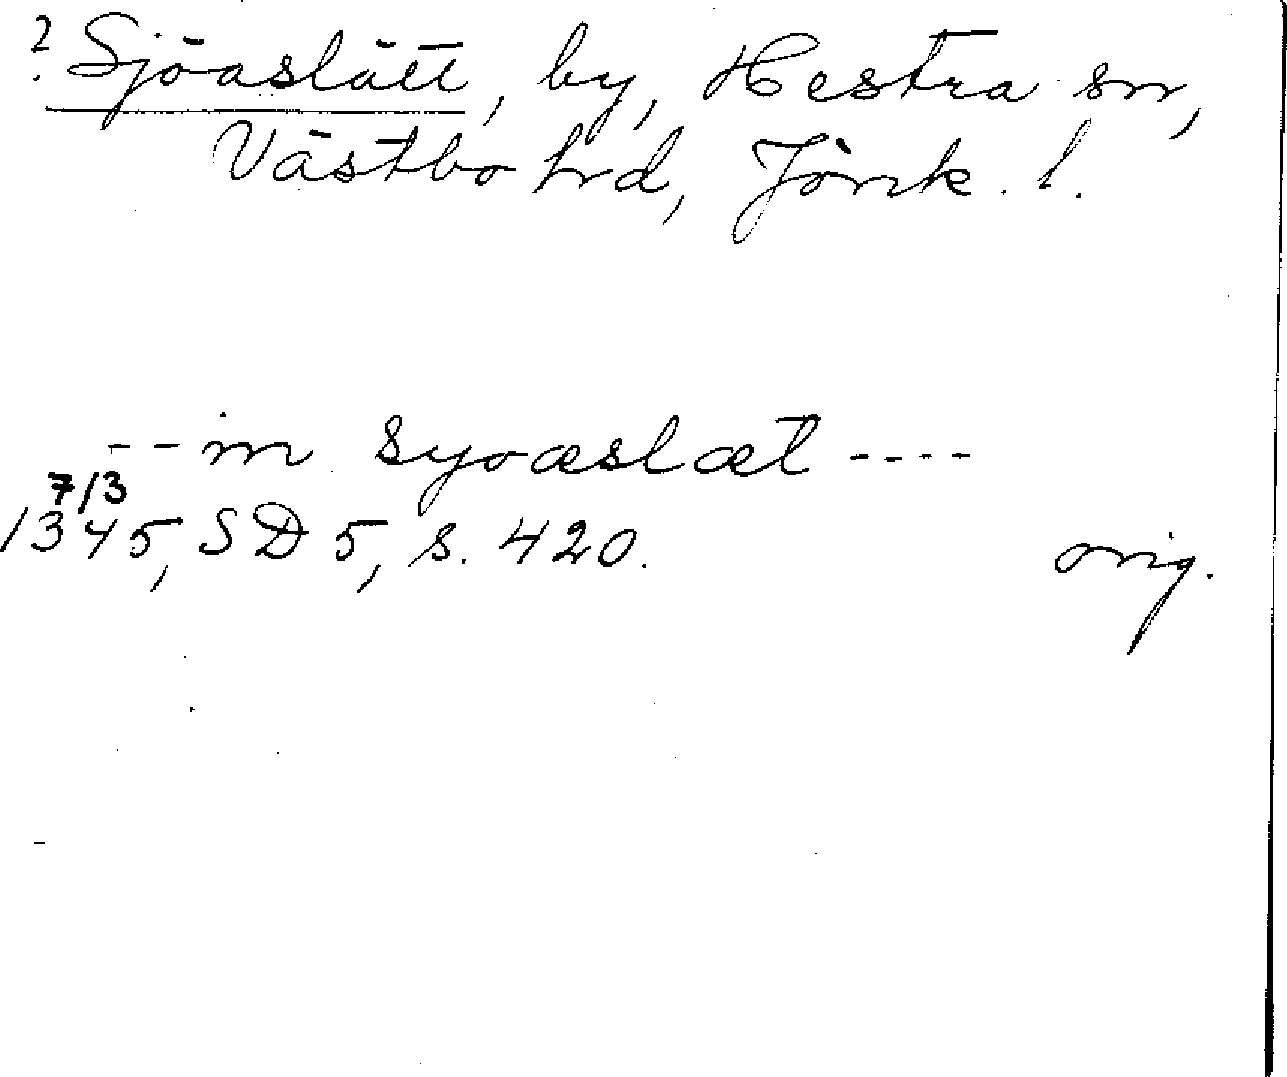 ? Sjöaslätt, by, Hestra sn,
Västbo hd, Jönk. l.
-- in syoæslæt ----
7/3
1345, SD 5, s. 420.
orig.